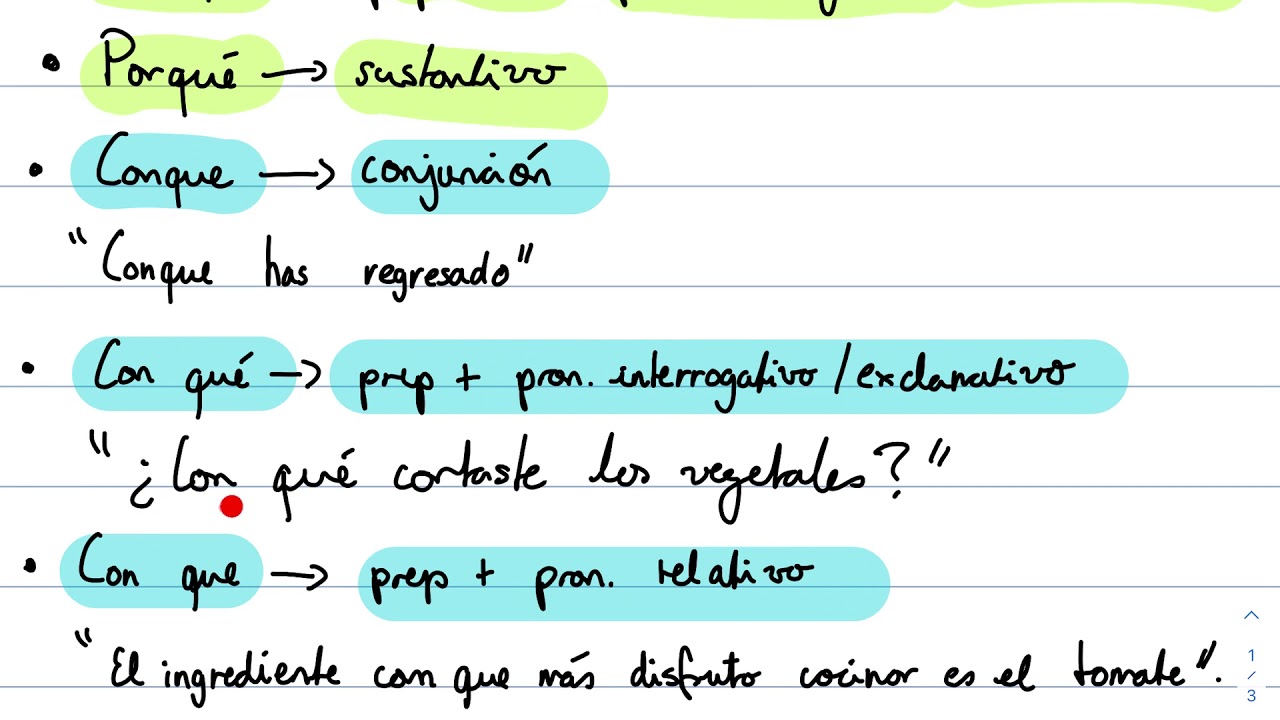 • Porqué → sustantivo
• Conque → conjunción
"Conque has regresado"
• Con qué → prep + pron. interrogativo / exclamativo
"¿Con qué cortaste los vegetales?"
• Con que → prep + pron. relativo
"El ingrediente con que más disfruto cocinar es el tomate".
1
/
3